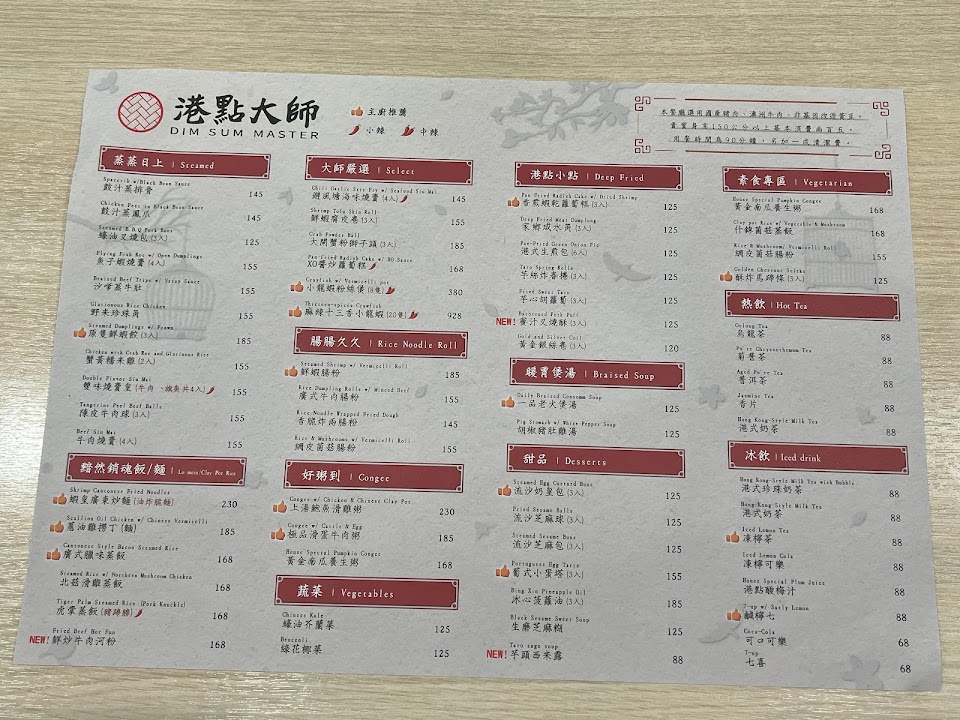 港點大師
DIM SUM MASTER
主廚推薦
小辣 中辣
本餐廳選用國產豬肉、澳洲牛肉、非基因改造黃豆。
貴賓身高150公分以上基本消費兩百元,
用餐時間為90分鐘,另加一成清潔費。
蒸蒸日上 | Steamed
Sparerib w/Black Bean Sauce
豉汁蒸排骨 145
Chicken Feet in Black Bean Sauce
豉汁蒸鳳爪 145
Steamed B.B.Q Pork Buns
蠔油叉燒包(3入) 125
Flying Fish Roe w/ Open Dumplings
魚子蝦燒賣(4入) 155
Braised Beef Tripe w/ Satay Sauce
沙嗲蒸牛肚 155
Glutinous Rice Chicken
野米珍珠角 155
Steamed Dumplings w/ Prawn
原隻鮮蝦餃(3入) 185
Chicken with Crab Roe and Glutinous Rice
蟹黃糯米雞(2入) 155
Double Flavor Siu Mai
雙味燒賣皇(牛肉、鱻魚共4入) 155
Tangerine Peel Beef Balls
陳皮牛肉球(3入) 155
Beef Siu Mai
牛肉燒賣(4入) 155
黯然銷魂飯/麵 | Lo mein/Clay Pot Rice
Shrimp Cantonese Fried Noodles
蝦皇廣東炒麵(油炸脆麵) 230
Scallion Oil Chicken w/ Chinese Vermicelli
蔥油雞撈丁(麵) 185
Cantonese Style Bacon Steamed Rice
廣式臘味蒸飯 168
Steamed Rice w/ Northern Mushroom Chicken
北菇滑雞蒸飯 168
Tiger Palm Steamed Rice (Pork Knuckle)
虎掌蒸飯(豬蹄膀) 168
Fried Beef Hor Fun
NEW! 鮮炒牛肉河粉 168
大師嚴選 | Select
Chili Garlic Stir Fry w/ Seafood Siu Mai
避風塘海味燒賣(4入) 145
Shrimp Tofu Skin Roll
鮮蝦腐皮卷(3入) 155
Crab Powder Ball
大閘蟹粉獅子頭(3入) 185
Pan-fried Radish Cake w/ XO Sauce
XO醬炒蘿蔔糕 168
Crayfish w/ Vermicelli pot
小龍蝦粉絲煲(8隻) 380
Thirteen-spices Crawfish
麻辣十三香小龍蝦(20隻) 928
腸腸久久 | Rice Noodle Roll
Steamed Shrimp w/ Vermicelli Roll
鮮蝦腸粉 185
Rice Dumpling Rolls w/ Minced Beef
廣式牛肉腸粉 155
Rice Noodle Wrapped Fried Dough
香脆炸兩腸粉 145
Rice & Mushrooms w/ Vermicelli Roll
網皮菌菇腸粉 155
好粥到 | Congee
Congee w/ Chicken & Chinese Clay Pot
上湯鮑魚滑雞粥 230
Congee w/ Cattle & Egg
極品滑蛋牛肉粥 185
House Special Pumpkin Congee
黃金南瓜養生粥 168
蔬菜 | Vegetables
Chinese Kale
蠔油芥蘭菜 125
Broccoli
綠花椰菜 125
港點小點 | Deep Fried
Pan Fried Radish Cake w/ Dried Shrimp
香煎蝦乾蘿蔔糕(3入) 125
Deep Fried Meat Dumplong
家鄉咸水角(3入) 125
Pan-Fried Green Onion Pie
港式生煎包(6入) 125
Taro Spring Rolls
芋絲炸春捲(3入) 125
Fried Sweet Taro
芋心胡蘿蔔(3入) 125
Barbecued Pork Puff
NEW! 蜜汁叉燒酥(3入) 125
Gold and Silver Coil
黃金銀絲卷(3入) 120
暖胃煲湯 | Braised Soup
Daily Braised Consomm Soup
一品老火煲湯 125
Pig Stomach w/ White Pepper Soup
胡椒豬肚雞湯 125
甜品 | Desserts
Steamed Egg Custard Buns
流沙奶皇包(3入) 125
Fried Sesame Balls
流沙芝麻球(3入) 125
Steamed Sesame Buns
流沙芝麻包(3入) 125
Portuguese Egg Tarts
葡式小蛋塔(3入) 155
Bing Xin Pineapple Oil
冰心菠蘿油(3入) 185
Black Sesame Sweet Soup
生磨芝麻糊 125
Taro sago soup
NEW! 芋頭西米露 88
素食專區 | Vegetarian
House Special Pumpkin Congee
黃金南瓜養生粥 168
Clay pot Rice w/ Vegetable & Mushroom
什錦菌菇蒸飯 168
Rice & Mushroom/ Vermicelli Roll
網皮菌菇腸粉 155
Golden Chestnut Sticks
酥炸馬蹄條(3入) 125
熱飲 | Hot Tea
Oolong Tea
烏龍茶 88
Pu're Chrysanthemum Tea
菊普茶 88
Aged Pu're Tea
普洱茶 88
Jasmine Tea
香片 88
Hong Kong-Style Tea
港式奶茶 88
冰飲 | Iced drink
Hong Kong-Style Milk Tea with Bubble
港式珍珠奶茶 88
Hong Kong-Style Milk Tea
港式奶茶 88
Iced Lemon Tea
凍檸茶 88
Iced Lemon Cola
凍檸可樂 88
House Special Plum Juice
港點酸梅汁 88
7-up w/ Salty Lemon
鹹檸七 88
Coca-Cola
可口可樂 68
7-up
七喜 68